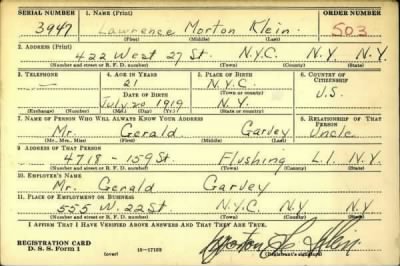 SERIAL NUMBER 1. NAME (Print) ORDER NUMBER
3947 Lawrence Morton Klein 503
(First) (Middle) (Last)
2. ADDRESS (Print)
422 West 27 St. N.Y.C. N.Y. N.Y.
(Number and street or R. F. D. number) (Town) (County) (State)
3. TELEPHONE 4. AGE IN YEARS 5. PLACE OF BIRTH 6. COUNTRY OF CITIZENSHIP
— 21 N.Y.C.
DATE OF BIRTH (Town or county) U.S.
July 20 1919 N.Y.
(Exchange) (Number) (Mo.) (Day) (Yr.) (State or country)
7. NAME OF PERSON WHO WILL ALWAYS KNOW YOUR ADDRESS 8. RELATIONSHIP OF THAT PERSON
Mr. Gerald Garvey Uncle
(Mr., Mrs., Miss) (First) (Middle) (Last)
9. ADDRESS OF THAT PERSON
4718 - 159 St. Flushing L.I. N.Y.
(Number and street or R. F. D. number) (Town) (County) (State)
10. EMPLOYER'S NAME
Mr. Gerald Garvey
11. PLACE OF EMPLOYMENT OR BUSINESS
555 W. 22 St. N.Y.C N.Y N.Y.
(Number and street or R. F. D. number) (Town) (County) (State)
I AFFIRM THAT I HAVE VERIFIED ABOVE ANSWERS AND THAT THEY ARE TRUE.
REGISTRATION CARD
D. S. S. Form 1 (over) Klein
(Registrant's signature)